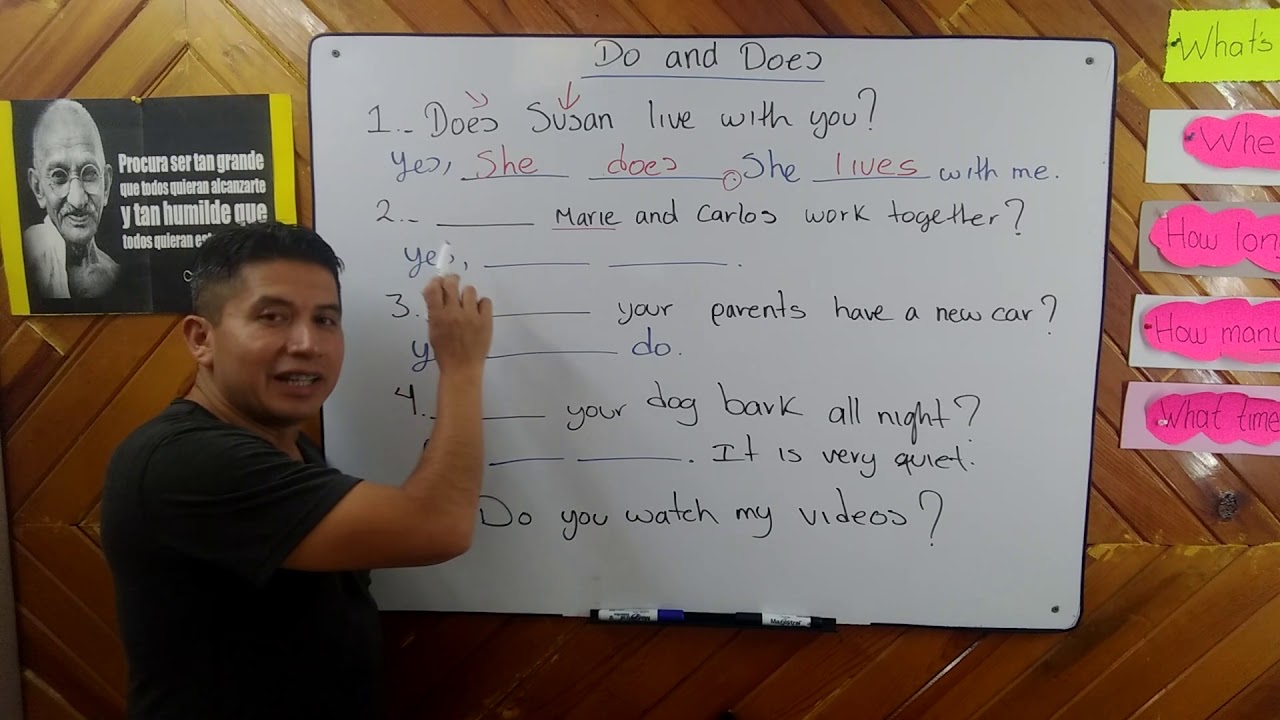 Do and Does
1.- Does Susan live with you?
yes, She does. She lives with me.
2.- ______ Marie and Carlos work together?
yes, ______ ______.
3. ______ your parents have a new car?
y ______ do.
4. ______ your dog bark all night?
______ ______. It is very quiet.
Do you watch my videos?
Procura ser tan grande
que todos quieran alcanzarte
y tan humilde que
todos quieran
What's
Whe
How lon
How many
What time
Magistral